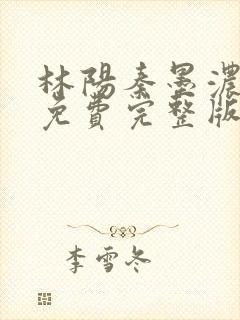 林陽秦墨濃
免費完整版
李雪冬